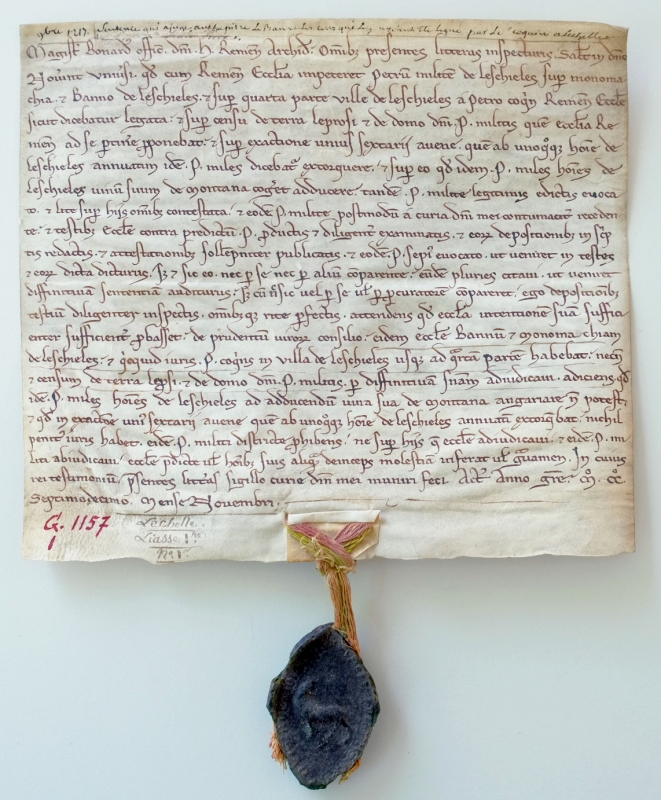 9bre 1217. Sentence qui ajuge
Magist̄ Bonard̄ offic̄. dn̄i. H. Remen̄ Archid̄. Om̄ibꝰ presentes litteras inspecturis. Salt̄ in dn̄o
Nov̄int univ̄si. qd̄ cum Remen̄ Ecclia impeteret Petrū milit̄e de leschieles sup̄ monoma
chia. ⁊ Banno de leschieles. ⁊ sup̄ quarta parte ville de leschieles a Petro coq̄n Remen̄ Eccl̄e
sicut dicebatur legata. ⁊ sup̄ censu de terra leprosi ⁊ de domo dn̄i. P. militis que ecclia Re
men̄ ad se p̄tin̄e p̄ponebat. ⁊ sup̄ exactione uniuſ sextarij avene. que ab unoq̄q̄ hōie de
leschieles annuatim idē. P. miles dicebat᷑ extorquere. ⁊ sup̄ eo qd̄ idem. P. miles hōies de
leschieles vinū suum de montana coḡet adducere. tandē. P. milite legitimis edictis evoca
to. ⁊ lite sup̄ hijs om̄ibꝰ contestata. ⁊ eodē. P. milite postmodū a curia dn̄i mei contumacit̄ receden
te. ⁊ testibꝰ Eccl̄e contra predictū. P. p̄ductis ⁊ diligent̄ examinatis. ⁊ eoꝝ depositionibꝰ in sc̄p
tis redactis. ⁊ attestationibꝰ sollēpnit̄ publicatis. ⁊ eodē. P. sepiꝰ evocato. ut veniret in testes
⁊ eoꝝ dicta dicturus. sꝫ ⁊ sic eo. nec p̄ se nec p̄ aliū comparente. eūdē pluries citavi. ut veniret
diffinitivā sententiā auditurus. sꝫ cū n̄ sic vel p̄ se ul̄ p̄ p̄curatorē comparēet. ego depositionibꝰ
testiū diligenter inspectis. om̄ibꝰq̄ rite p̄fectis. attendens qd̄ eccl̄a intentionē suā suffici
enter sufficient̄ p̄basset. de prudentū uiroꝝ consilio. eidem eccl̄e Bannū ⁊ monoma chiam
de leschieles. ⁊ q̄cquid iuris. P. coq̄ns in villa de leschieles usq̄ ad q̄rtā partē habebat. necn̄
⁊ censum de terra lep̄si. ⁊ de domo dn̄i. P. militis. p̄ diffinitivā sn̄iam adiudicavi. adiciens qd̄
idē. P. miles hōies de leschieles ad adducendū vina sua de montana angariare n̄ potest.
⁊ qd̄ in exactiōe uniꝰ sextarij avene que ab unoq̄q̄ hōie de leschieles annuatī extorq̄bat. nichil
penitꝰ iuris habet. eidē. P. militi districte p̄hibens. ne sup̄ hijs q̄ eccl̄e adiudicavi. ⁊ eidē. P. mi
liti abiudicavi. eccl̄e p̄dicte ul̄ hōibꝰ suis aliq̄ deinceps molestiā inferat ul̄ gͣvamen. In cuius
rei testimoniū. p̄sentes litt̄as sigillo curie dn̄i mei muniri feci. Act̄. Anno gr̄e. M̊. CC̊.
Septimodecimo. Mense Novembri.
G. 1157
1
Leschelle.
Liasse 1re
No 1er